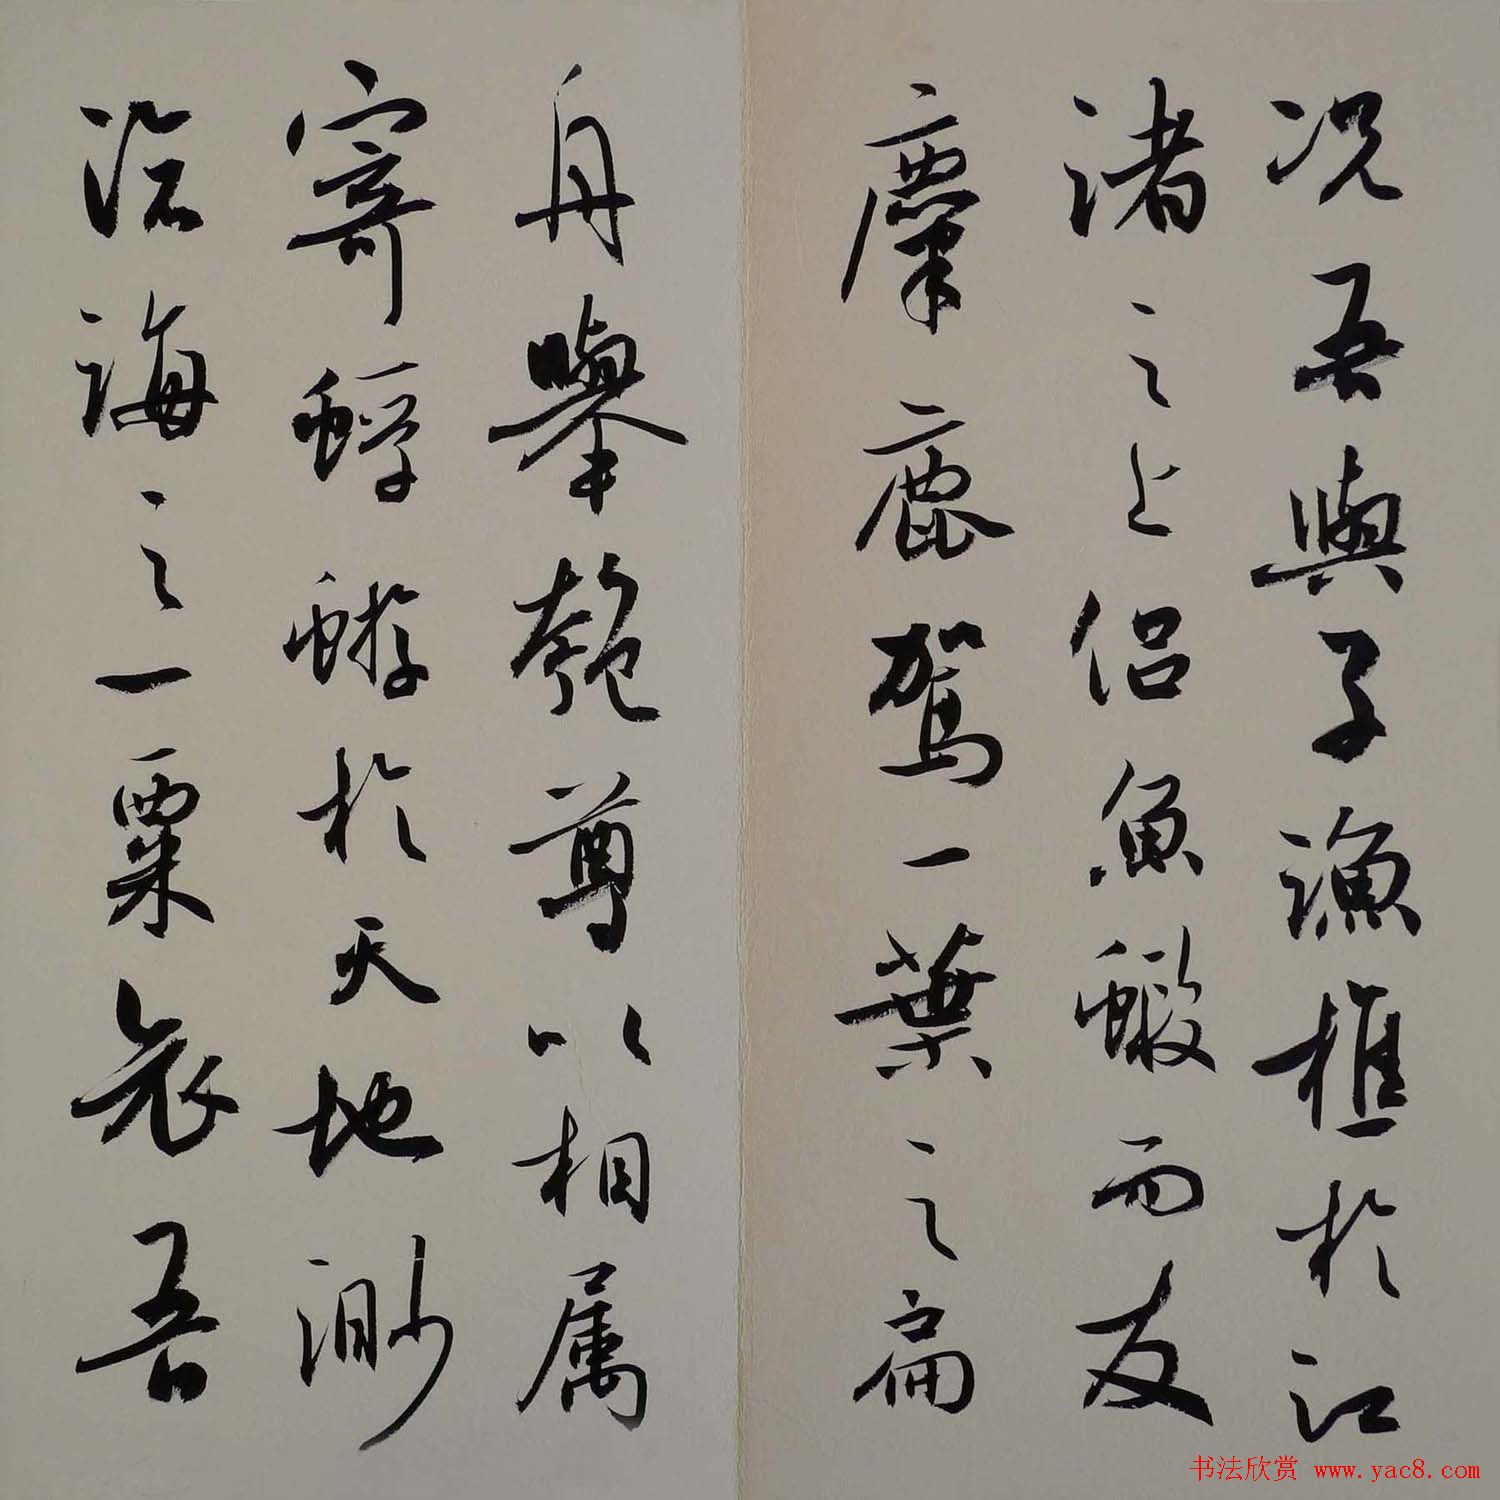 况吾與子漁樵於江
渚之上侣魚蝦而友
麋鹿駕一葉之扁
舟舉匏尊以相属
寄蜉蝣於天地渺
滄海之一粟哀吾
书法欣赏 www.yac8.com